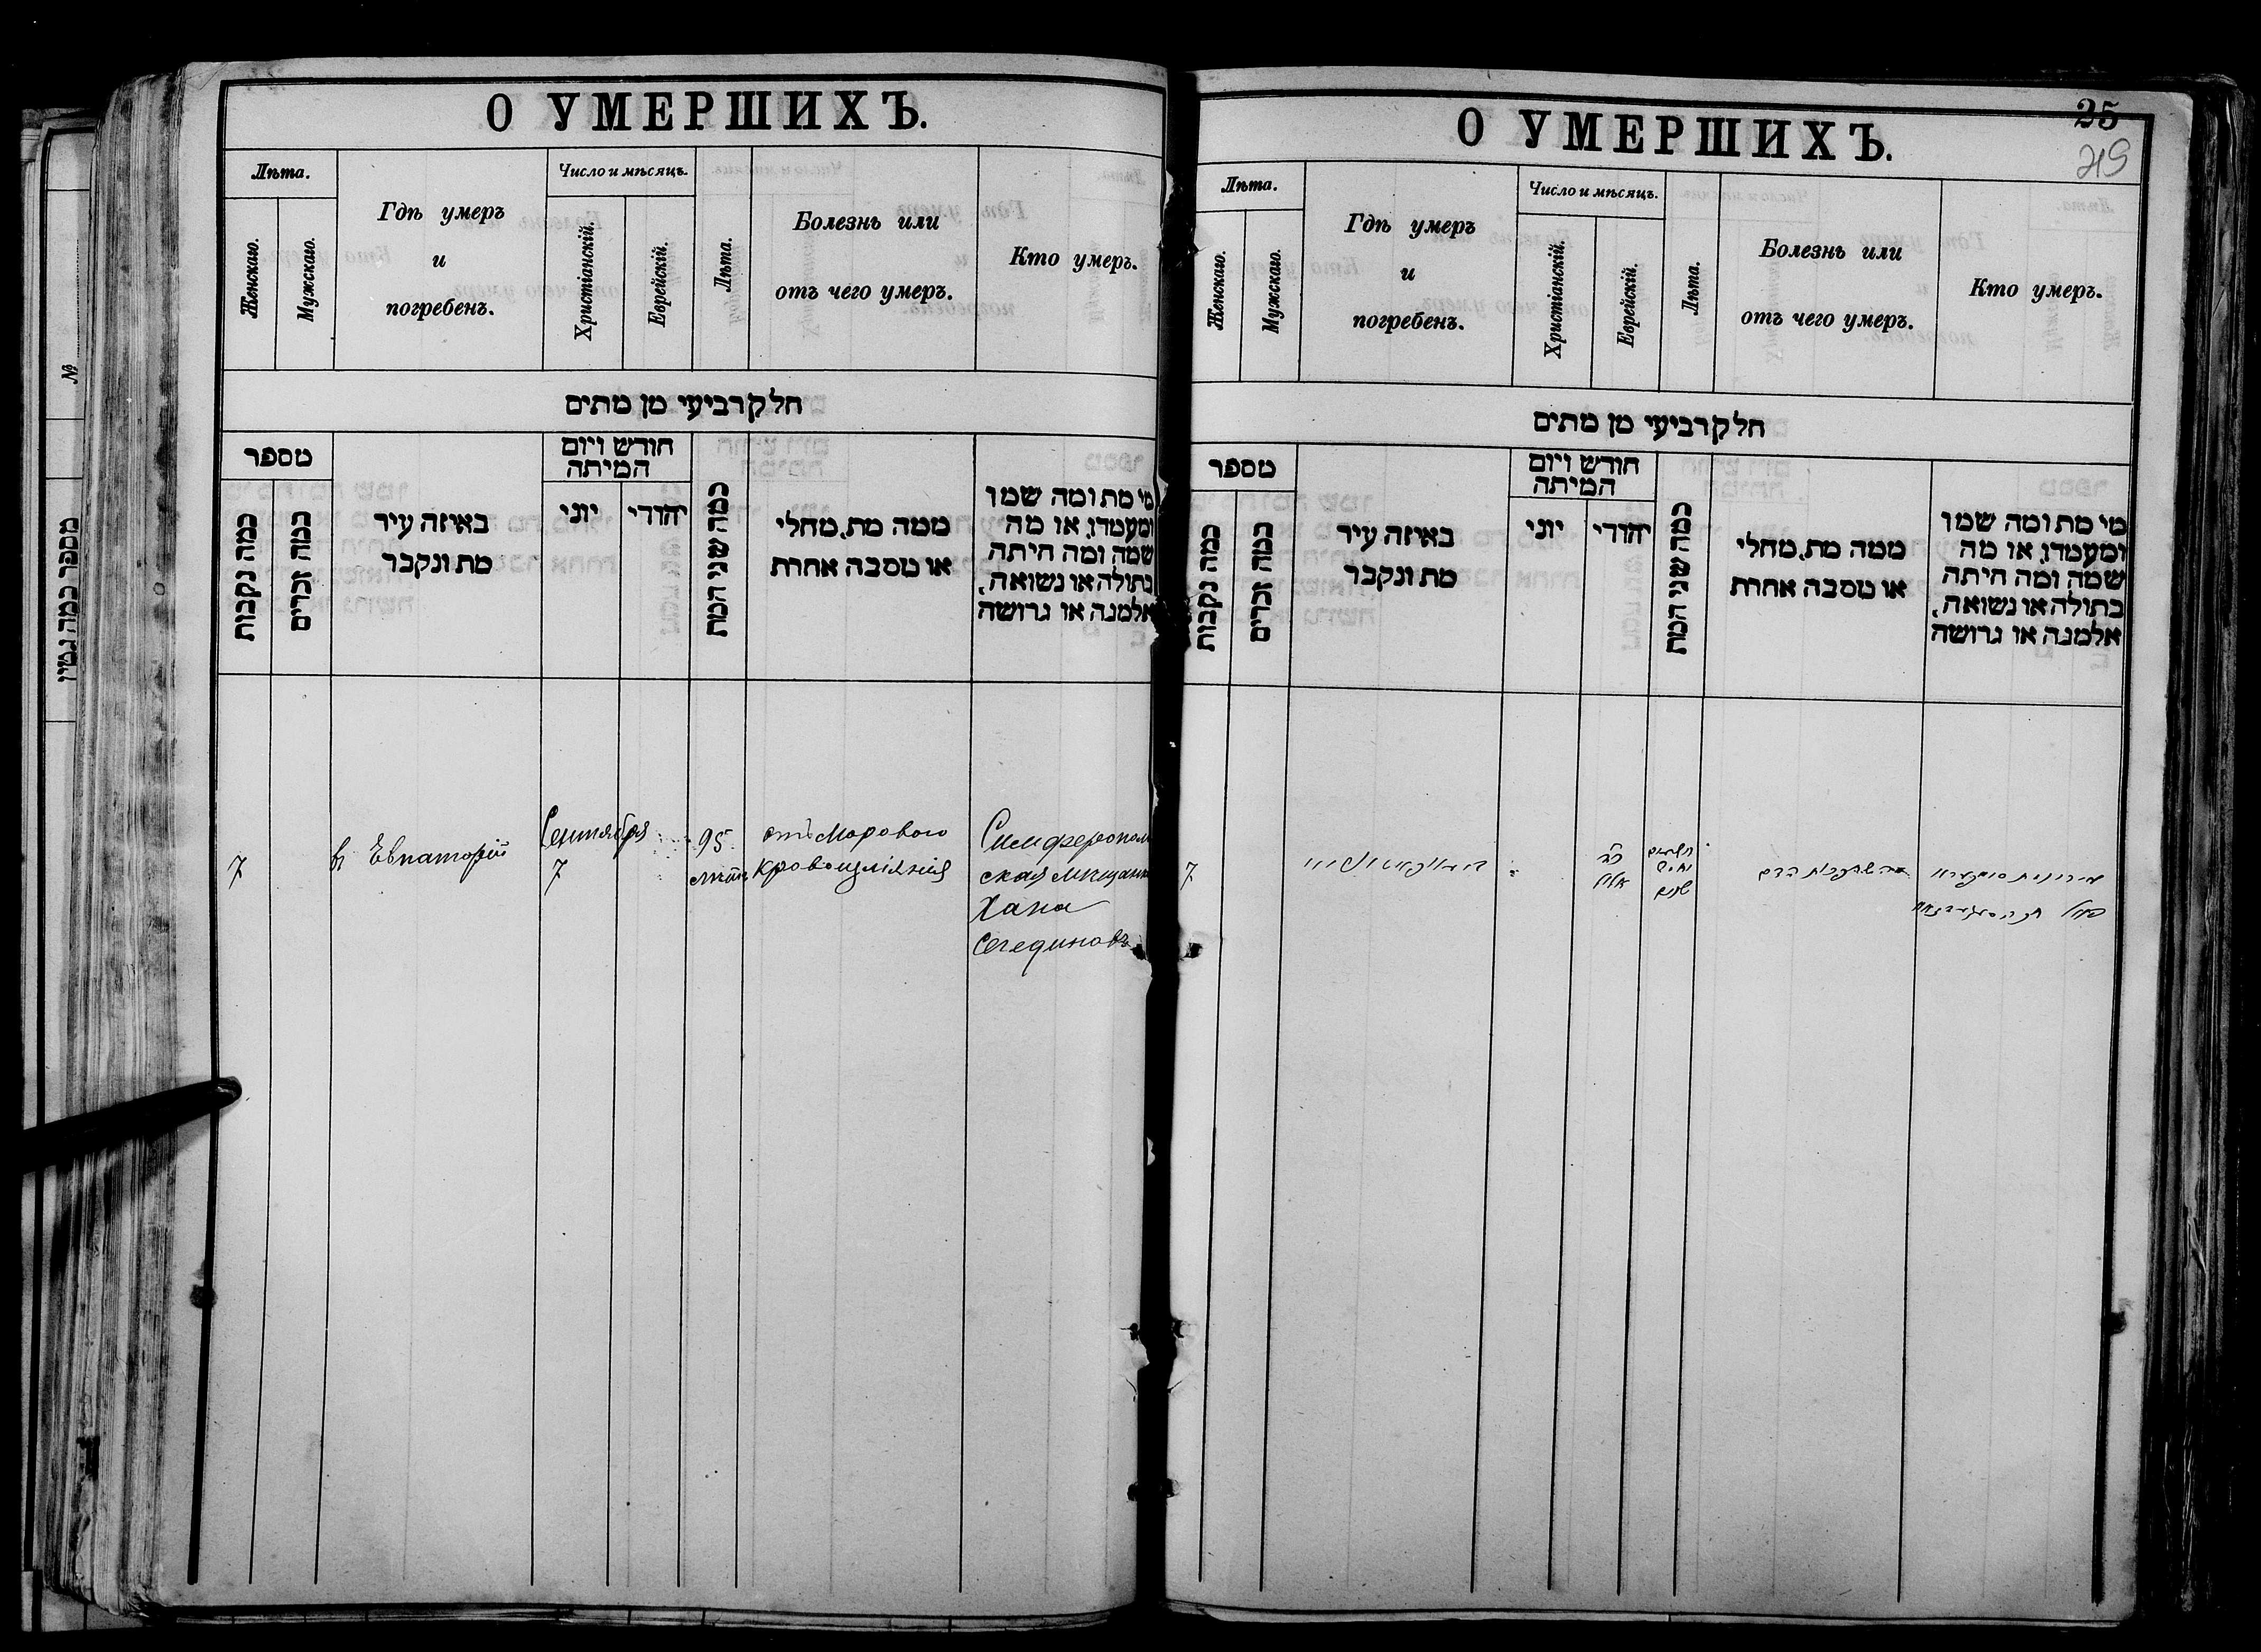 О УМЕРШИХЪ.
Лѣта.
Женскаго.
Мужскаго.
Гдѣ умеръ
и
погребенъ.
Число и мѣсяцъ.
Христіанскій.
Еврейскій.
Лѣта.
Болезнь или
отъ чего умеръ.
Кто умеръ.
חלק רביעי מן מתים
מספר
כמה נקבות
כמה זכרים
באיזה עיר
מת ונקבר
חודש ויום
המיתה
יוני
יהודי
כמה שני המת
ממה מת, מחלי
או מסבה אחרת
מי מת ומה שמו
ומעמדו, או מה
שמה ומה היתה
בתולה או נשואה,
אלמנה או גרושה
7
въ Евпаторіи
Сентября
7
95
лѣтъ
отъ Морового
кровоизліянія
Симферополь
ская мѣщанка
Хана
Сегединовъ
№
מספר כמה גטין
О УМЕРШИХЪ.
25
Лѣта.
Женскаго.
Мужскаго.
Гдѣ умеръ
и
погребенъ.
Число и мѣсяцъ.
Христіанскій.
Еврейскій.
Лѣта.
Болезнь или
отъ чего умеръ.
Кто умеръ.
חלק רביעי מן מתים
מספר
כמה נקבות
כמה זכרים
באיזה עיר
מת ונקבר
חודש ויום
המיתה
יוני
יהודי
כמה שני המת
ממה מת, מחלי
או מסבה אחרת
מי מת ומה שמו
ומעמדו, או מה
שמה ומה היתה
בתולה או נשואה,
אלמנה או גרושה
7
אלול
שנים
הדם